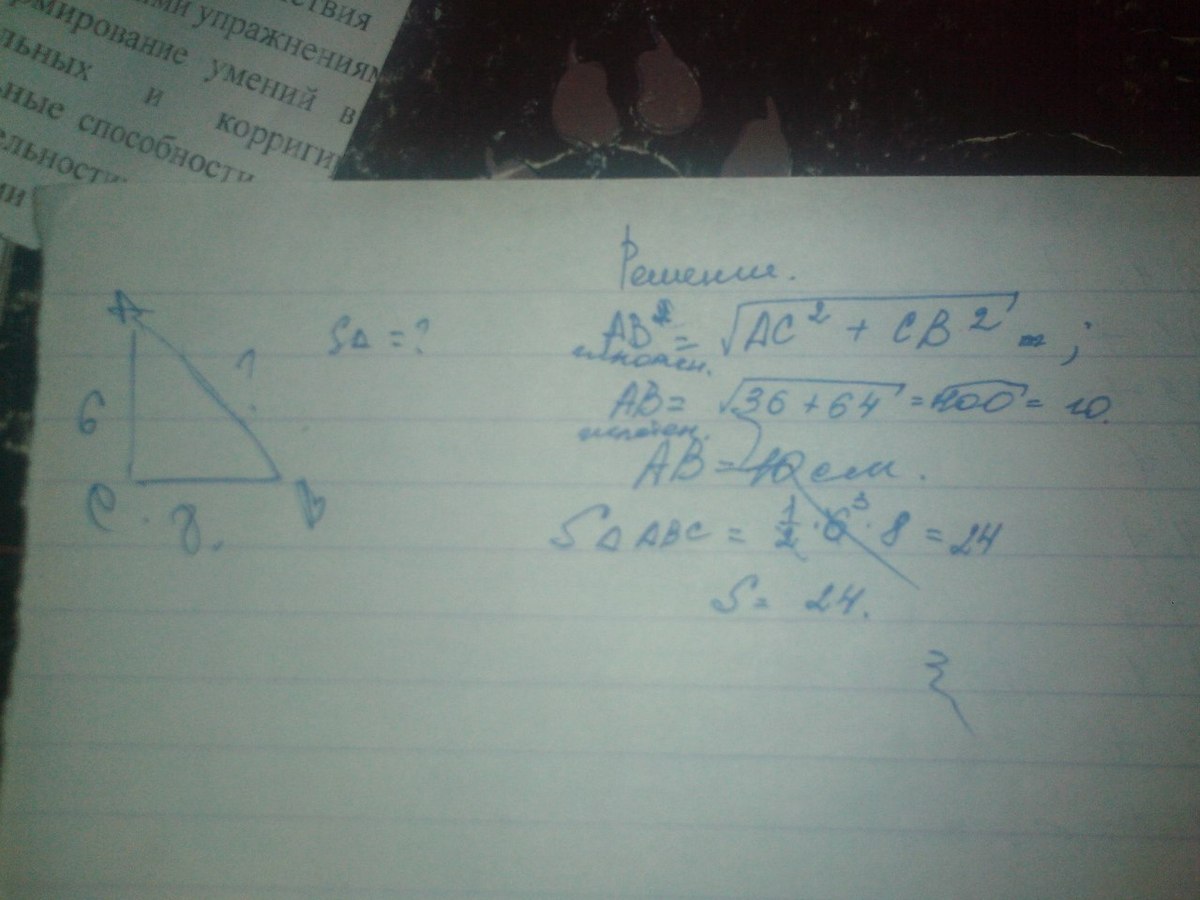 ствия
ими упражнениям
рмирование умений в
льных и корриги
ьные способности
ельности
ми
Решение.
A
SΔ = ?
AB = √AC² + CB² ;
гипотен.
6
?
AB = √36 + 64 = √100 = 10.
гипотен.
AB = 10 см.
C
8.
B
SΔ ABC = 1/2 · 6 ³ · 8 = 24
S = 24.